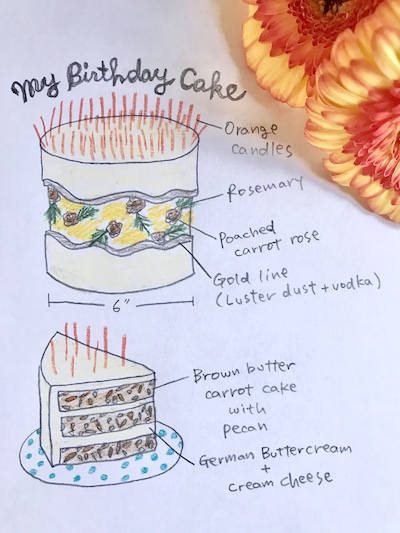 My Birthday Cake
Orange
candles
Rosemary
Poached
carrot rose
Gold line
(Luster dust + vodka)
6"
Brown butter
carrot cake
with
pecan
German Buttercream
+
cream cheese